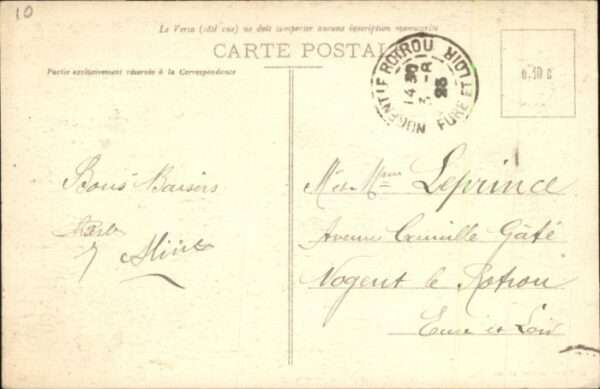 10
Le Verso (côté vue) ne doit comporter aucune inscription manuscrite
CARTE POSTALE
Partie exclusivement réservée à la Correspondance
NOGENT LE ROTROU
14 30
3 - 8
23
EURE ET LOIR
Bons Baisers
M et Mme Leprince
Avenue Camille Gâté
Nogent le Rotrou
Eure et Loir